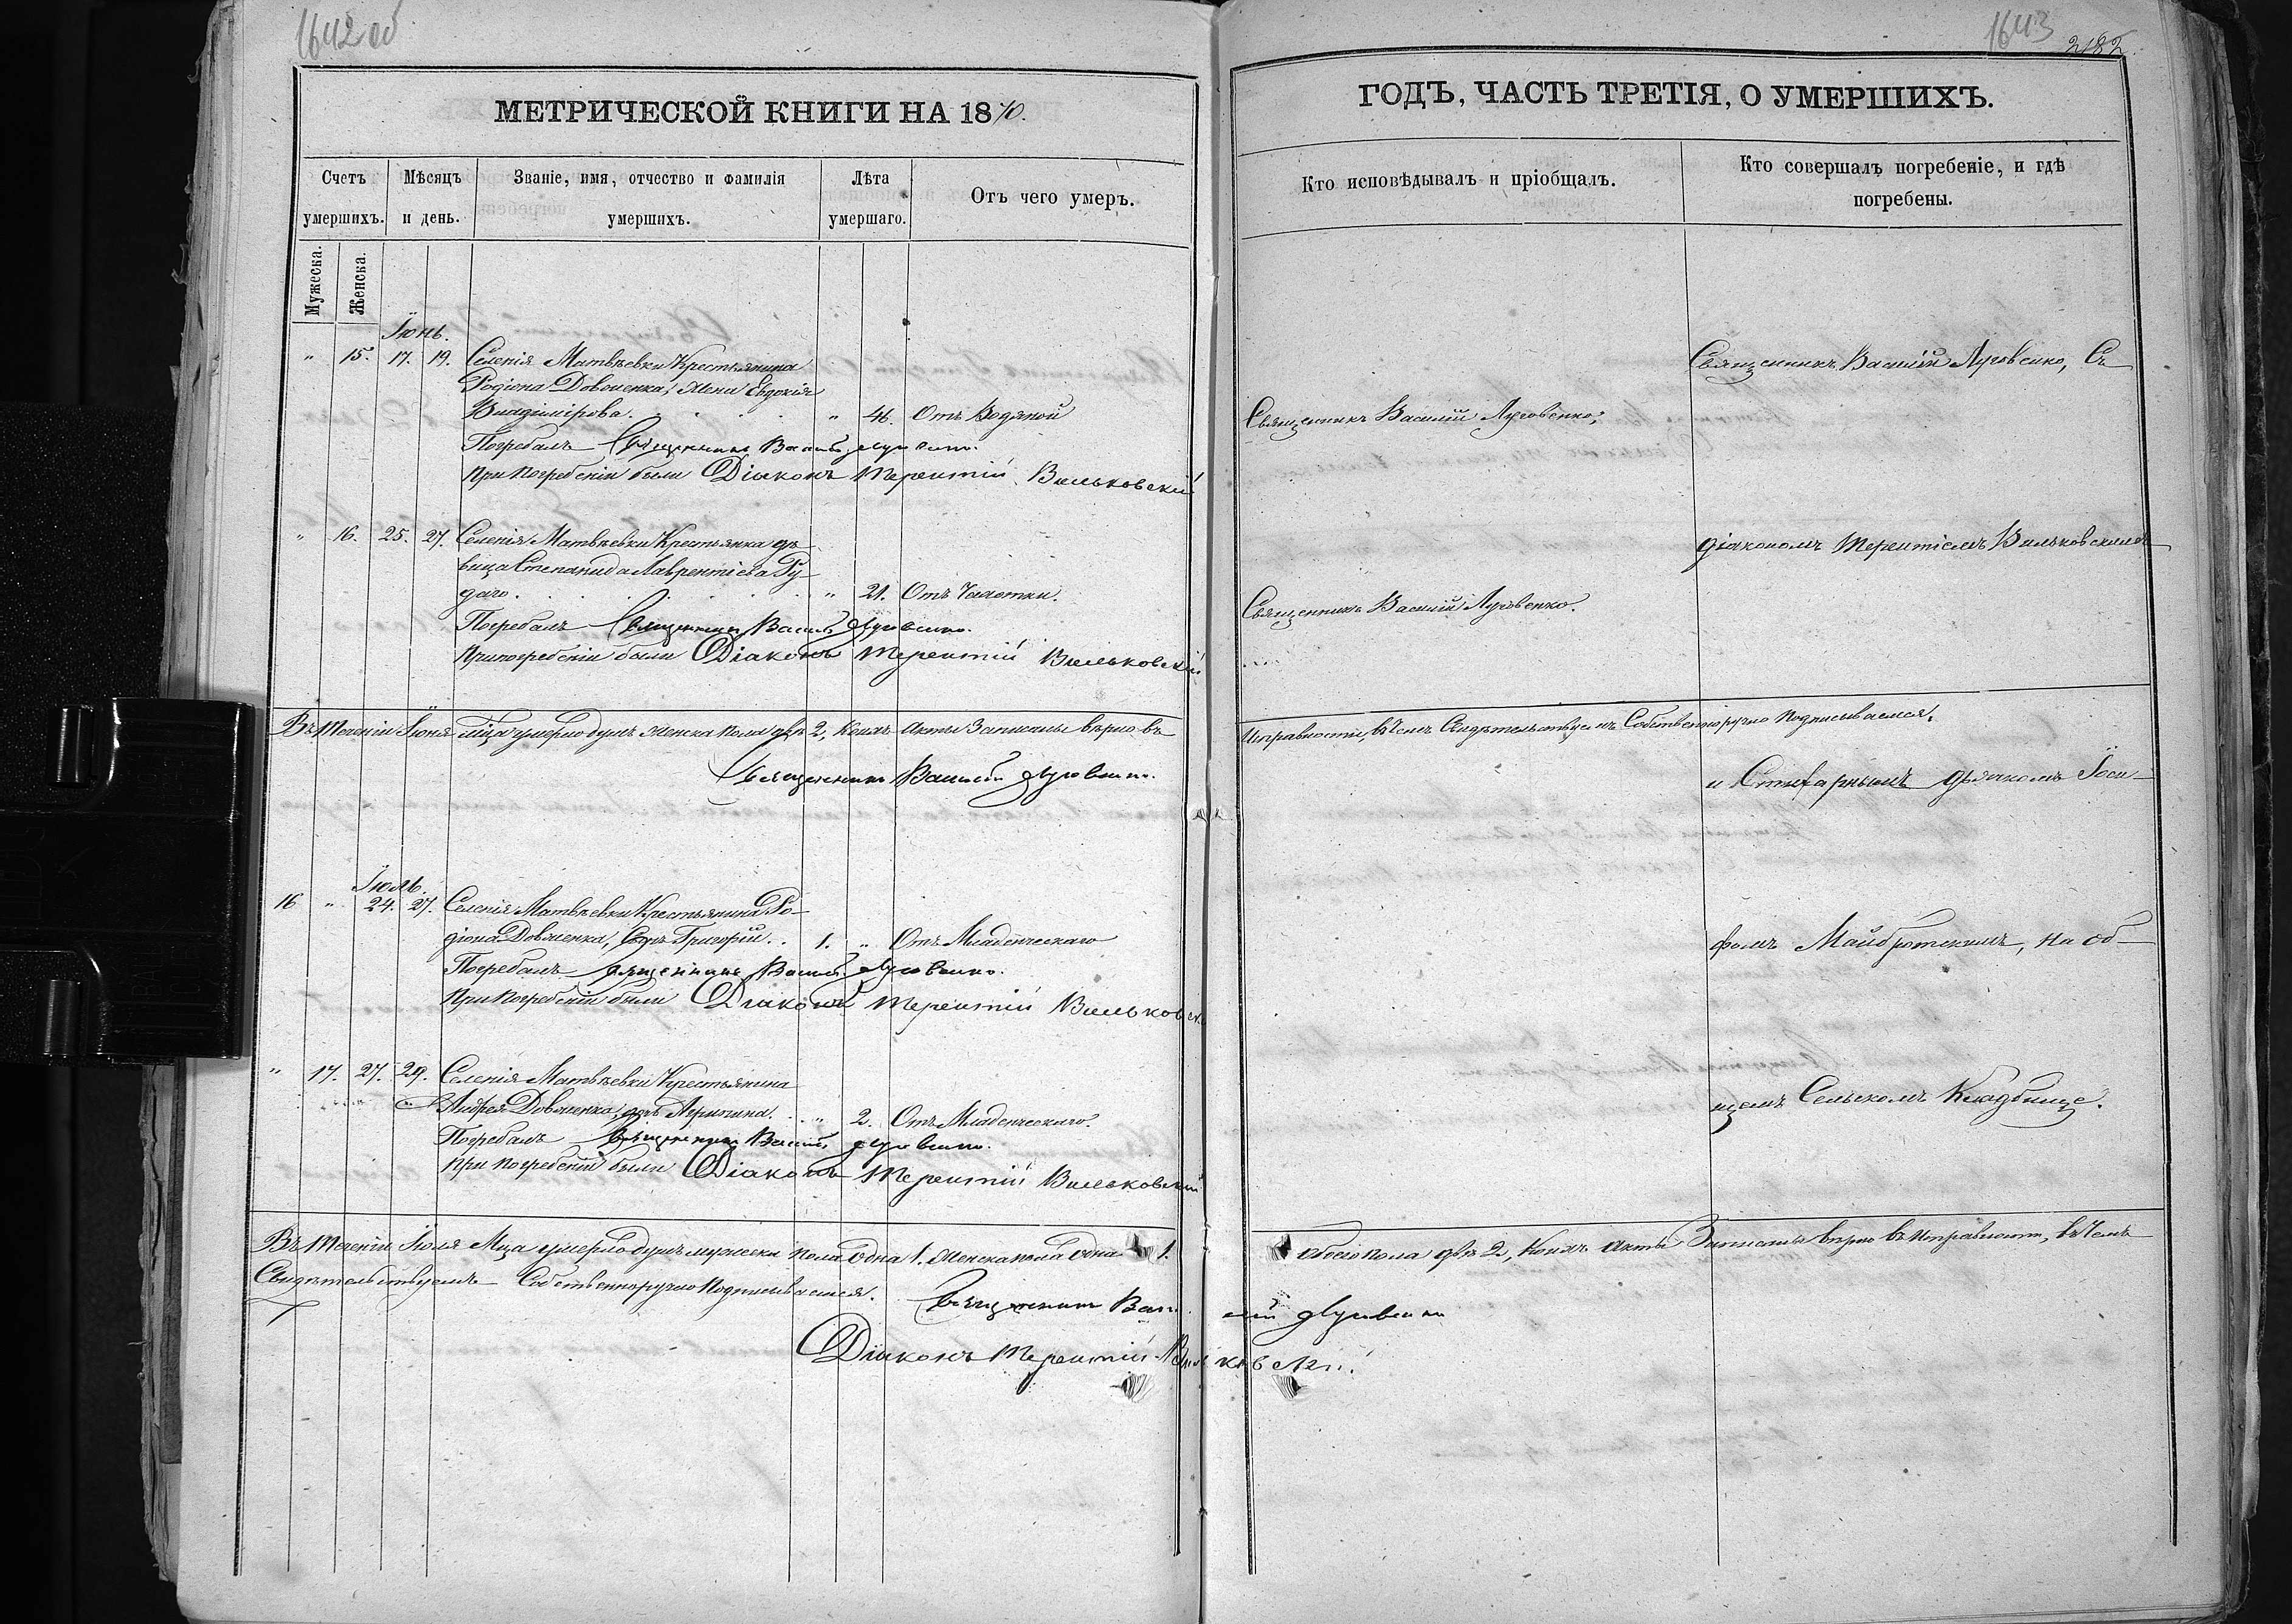 1642 об
МЕТРИЧЕСКОЙ КНИГИ НА 1870.
Счетъ умершихъ.
Мѣсяцъ и день.
Званіе, имя, отчество и фамилія умершихъ.
Лѣта умершаго.
Отъ чего умеръ.
Мужеска.
Женска.
Іюнь.
" 15. 17. 19. Селенія Матвѣевки Крестьянина
Родіона Довженка, жена Евдокія
Владімірова. " 46. Отъ Водяной
Погребалъ Священникъ Василій Луговенко.
При погребеніи были Діаконъ Терентій Вильковскій
" 16. 25. 27. Селенія Матвѣевки Крестьянка дѣ-
вица Степанида Лаврентіева Ру-
даго. " 21. Отъ Чахотки.
Погребалъ Священникъ Василій Луговенко.
При погребеніи были Діаконъ Терентій Вильковскій
Въ теченіи Іюня м̃ца умерло душъ женска пола двѣ 2, коихъ акты записаны вѣрно въ
Священникъ Василій Луговенко.
Іюль.
16 " 24. 27. Селенія Матвѣевки Крестьянина Ро-
діона Довженка, сынъ Григорій. 1. " Отъ Младенческаго
Погребалъ Священникъ Василій Луговенко.
При погребеніи были Діаконъ Терентій Вильковск
" 17. 27. 29. Селенія Матвѣевки Крестьянина
Андрея Довженка, дочь " 2. Отъ Младенческаго.
Погребалъ Священникъ Василій Луговенко.
При погребеніи были Діаконъ Терентій Вильковскій
Въ теченіи Іюля М̃ца умерло душъ мужеска пола одна 1. женска пола одна 1.
Свидѣтельствуемъ Собственноручно подписываемся.
Священникъ Васи
Діаконъ Терентій Виль
1643
2182.
ГОДЪ, ЧАСТЬ ТРЕТІЯ, О УМЕРШИХЪ.
Кто исповѣдывалъ и пріобщалъ.
Кто совершалъ погребеніе, и гдѣ
погребены.
Священникъ Василій Луговенко, Съ
Священникъ Василій Луговенко,
діакономъ Терентіемъ Вильковскимъ
Священникъ Василій Луговенко.
исправности, въ чемъ Свидѣтельствуемъ Собственноручно подписываемся.
и Стихарнымъ дьячкомъ Іоси-
фомъ Майбротскимъ, на об-
щемъ Сельскомъ Кладбище.
обоего пола двѣ 2, коихъ акты Записаны вѣрно въ исправности, въ чемъ
лій Луговенко
ковскій